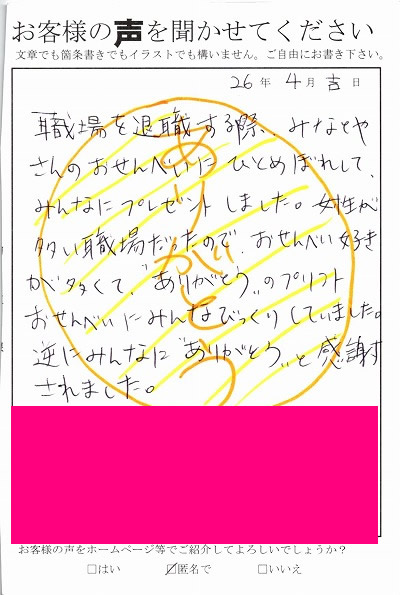 お客様の声を聞かせてください
文章でも箇条書きでもイラストでも構いません。ご自由にお書き下さい。
26年 4月 吉日
職場を退職する際、みなとや
さんのおせんべいにひとめぼれして、
みんなにプレゼントしました。女性が
多い職場だったので、おせんべい好き
が多くて、"ありがとう"のプリント
おせんべいにみんなびっくりしていました。
逆にみんなに"ありがとう"と感謝
されました。
ありがとう
お客様の声をホームページ等でご紹介してよろしいでしょうか？
□はい ☑匿名で □いいえ